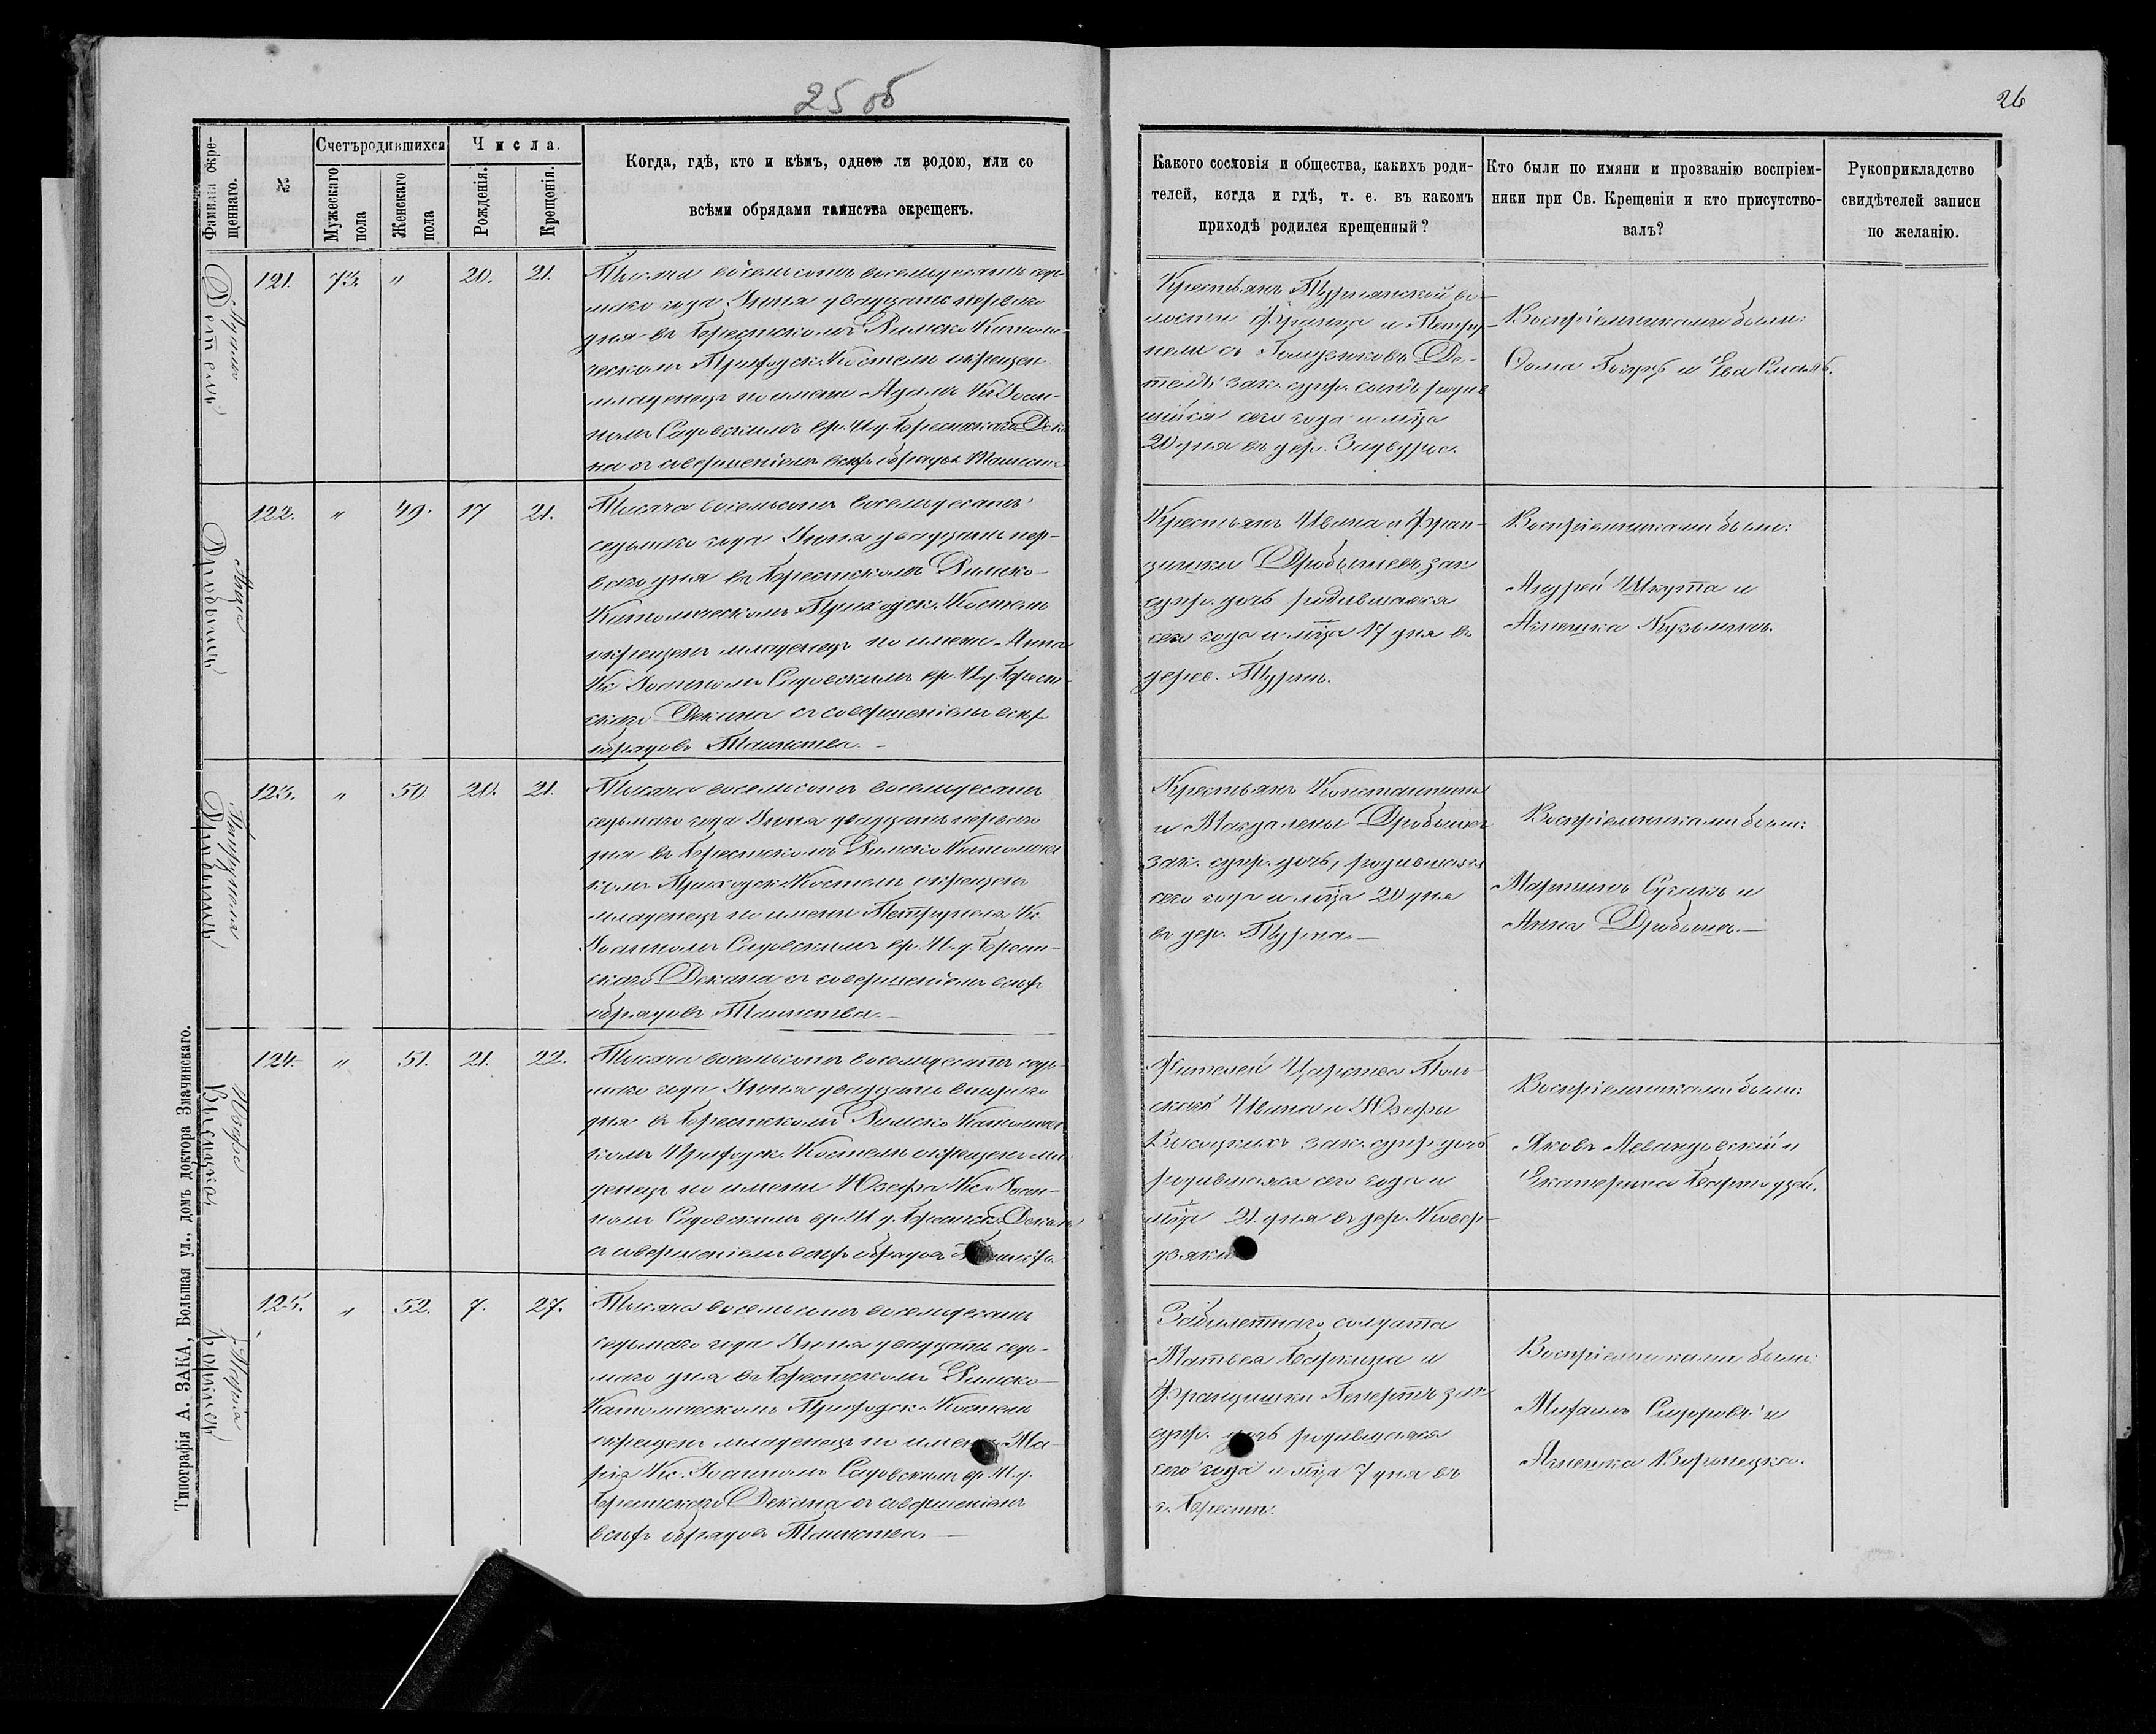 25 об
26
Фамилія окре-
щеннаго.
№
Счетъ родившихся
Мужескаго
пола
Женскаго
пола
Числа.
Рожденія.
Крещенія.
Когда, гдѣ, кто и кѣмъ, одною ли водою, или со
всѣми обрядами таинства окрещенъ.
Какого сословія и общества, какихъ роди-
телей, когда и гдѣ, т. е. въ какомъ
приходѣ родился крещенный?
Кто были по имяни и прозванію воспріем-
ники при Св. Крещеніи и кто присутство-
валъ?
Рукоприкладство
свидѣтелей записи
по желанію.
Адамъ
121. 73. " 20. 21.
Тысяча восемьсотъ восемьдесятъ седь-
маго года Іюня двадцать перваго
дня въ Брестскомъ Римско Католи-
ческомъ Приходск. Костелѣ окрещен
младенецъ по имени Адамъ Кс. Іоан-
номъ Садовскимъ вр. И. д. Брестскаго Дека
на съ совершеніемъ всѣхъ обрядовъ Таинств
Крестьянъ Турнянской во-
лости Франца и Петру-
нели съ
зак. супр. сынъ родив
шійся сего года и мѣса
20 дня въ дер.
Воспріемниками были:
Ѳома и Ева
Анна
Дробышъ
122. " 49. 17 21.
Тысяча восемьсотъ восемьдесятъ
седьмаго года Іюня двадцать пер-
ваго дня въ Брестскомъ Римско-
Католическомъ Приходск. Костелѣ
окрещенъ младенецъ по имени Анна
Кс. Іоанномъ Садовскимъ вр. И. д. Брест-
скаго Декана съ совершеніемъ всѣхъ
обрядовъ Таинства. –
Крестьянъ Ивана и Фран-
цишки Дробышевъ зак
супр. дочь родившаяся
сего года и мѣса 17 дня въ
дерев. Турны.
Воспріемниками были:
Андрей Шкута и
Агнешка
Петрунеля
Дробышъ
123. " 50. 20. 21.
Тысяча восемьсотъ восемьдесятъ
седьмаго года Іюня двадцать перваго
дня въ Брестскомъ Римско Католичес
комъ Приходск. Костелѣ окрещенъ
младенецъ по имени Петрунеля Кс.
Іоанномъ Садовскимъ вр. И. д. Брест-
скаго Декана съ совершеніемъ всѣхъ
обрядовъ Таинства. –
Крестьянъ Константина
и Магдалены Дробышев
зак. супр. дочь, родившаяся
сего года и мѣса 20 дня
въ дер. Турна. –
Воспріемниками были:
Мартинъ и
Анна Дробышъ. –
Юзефа
Высоцкая
124. " 51. 21. 22.
Тысяча восемьсотъ восемьдесятъ седь-
маго года Іюня двадцать втораго
дня въ Брестскомъ Римско Католичес
комъ Приходск. Костелѣ окрещенъ мла
денецъ по имени Юзефа Кс. Іоан-
номъ Садовскимъ вр. И. д. Брестск. Декана
съ совершеніемъ всѣхъ обрядовъ
Жителей Царства Поль-
скаго Ивана и Юзефы
Высоцкихъ зак. супр. дочь
родившаяся сего года и
мѣса 21. дня въ дер.
Воспріемниками были:
Яковъ Левандовскій и
Екатерина
Марія
125. " 52. 7. 27.
Тысяча восемьсотъ восемьдесятъ
седьмаго года Іюня двадцать седь-
маго дня въ Брестскомъ Римско-
Католическомъ Приходск. Костелѣ
окрещенъ младенецъ по имени Ма-
рія Кс. Іоанномъ Садовскимъ вр. И. д.
Брестскаго Декана съ совершеніемъ
всѣхъ обрядовъ Таинства. –
солдата
Матвея и
Францишки зак
супр. дочь родившаяся
сего года и мѣса 7 дня въ
г. Брестѣ.
Воспріемниками были:
Михаилъ и
Агнешка Воронецка.
Типографія А. ЗАКА, Большая ул., домъ доктора Значинскаго.